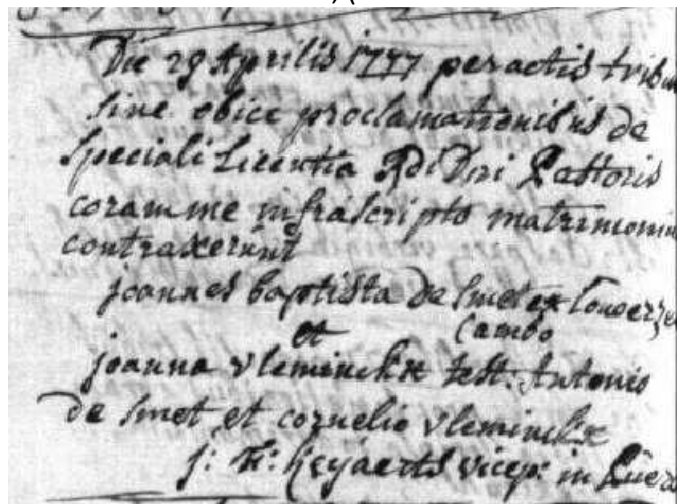 Die 29 Aprilis 1777 peractis tribus
sine obice proclamationibus de
speciali Licentia Rdi Dni Pastoris
coram me infrascripto matrimonium
contraxerunt
joannes baptista de Smet ex
et (ambo
joanna vleminckx test. Antonio
de Smet et cornelio vleminckx
j: vicep: in